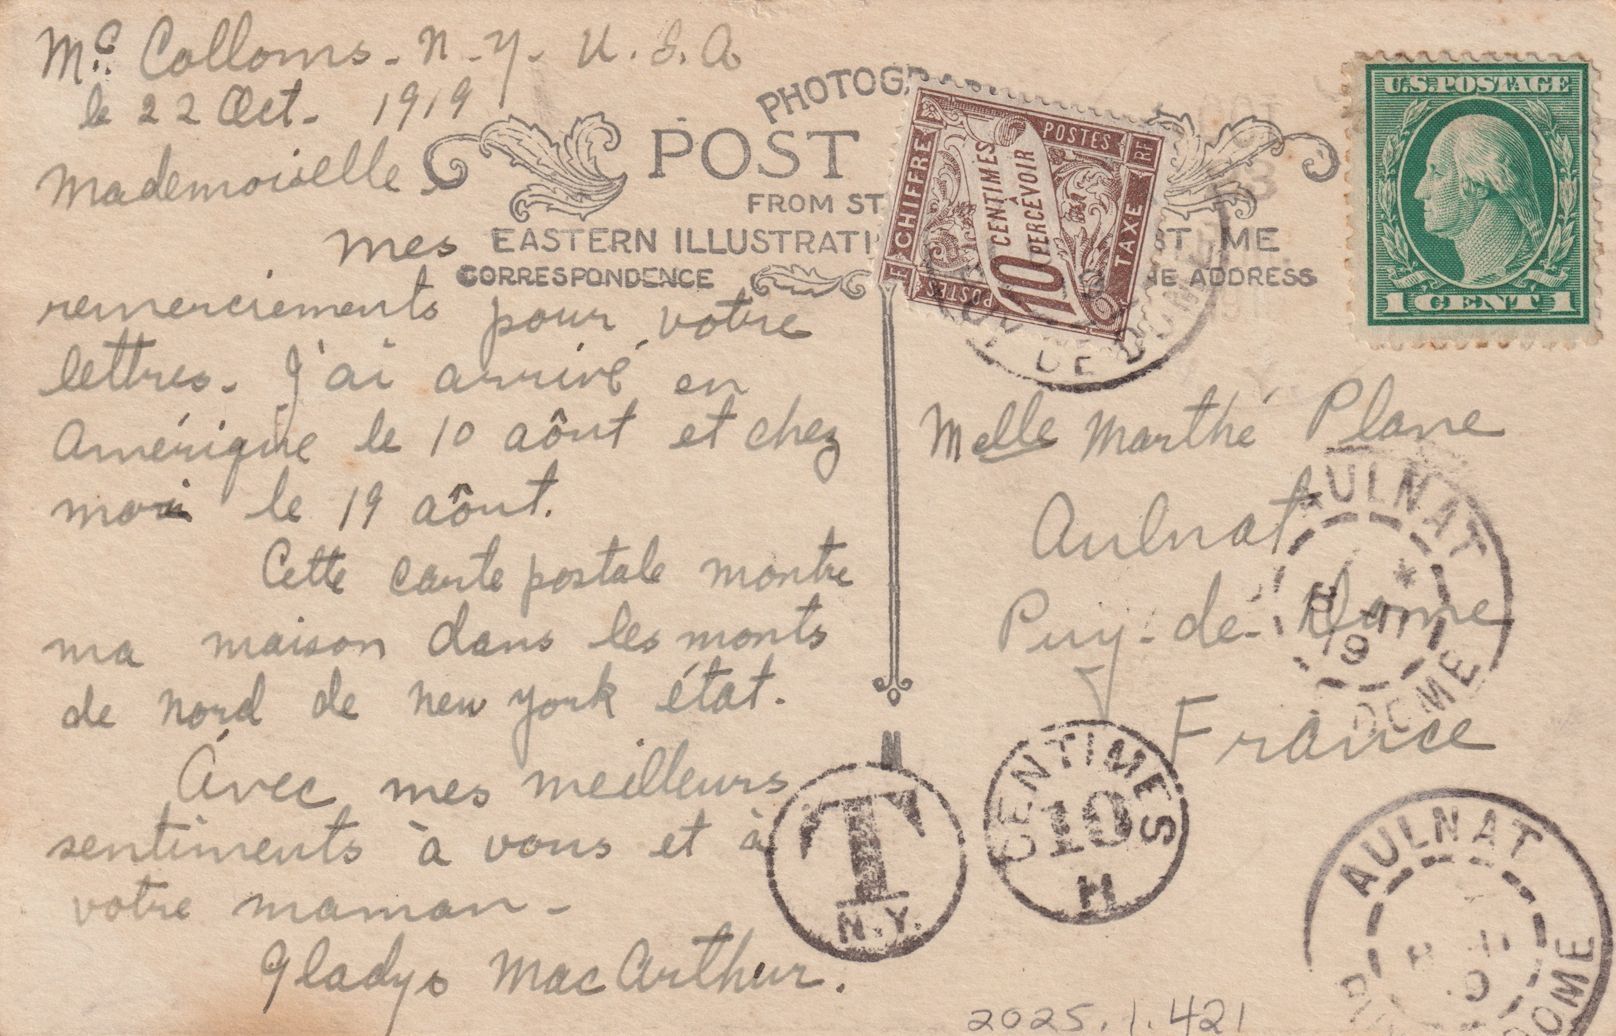 Mc Colloms - N - Y - U. S. A
le 22 Oct - 1919
PHOTOGRAP
POST
FROM ST
EASTERN ILLUSTRATI
ST ME
CORRESPONDENCE
NE ADDRESS
Mademoiselle -
mes
remerciements pour votre
lettres - J'ai arrivé en
Amérique le 10 aôut et chez
moi le 19 aôut.
Cette carte postale montre
ma maison dans les monts
de nord de New York état.
Avec mes meilleurs
sentiments à vous et à
votre maman -
Gladys MacArthur.
CHIFFRE
TAXE
POSTES
RF
10 CENTIMES
À PERCEVOIR
POSTES
DE DOME
U.S. POSTAGE
1 CENT 1
Melle Marthé Plane
Aulnat
Puy - de - Dome
France
AULNAT
DOME
T
N.Y.
CENTIMES
10
H
AULNAT
DOME
2025.1.421